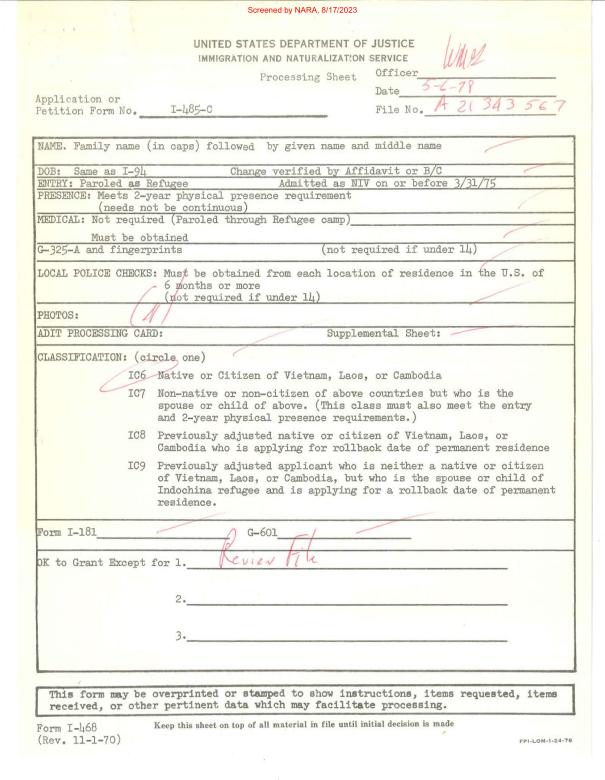 Screened by NARA, 8/17/2023
UNITED STATES DEPARTMENT OF JUSTICE
IMMIGRATION AND NATURALIZATION SERVICE
Processing Sheet
Officer
Date 5-6-78
Application or
Petition Form No. I-485-C
File No. A 21 343 567
NAME. Family name (in caps) followed by given name and middle name
DOB: Same as I-94 Change verified by Affidavit or B/C
ENTRY: Paroled as Refugee Admitted as NIV on or before 3/31/75
PRESENCE: Meets 2-year physical presence requirement
(needs not be continuous)
MEDICAL: Not required (Paroled through Refugee camp)
Must be obtained
G-325-A and fingerprints (not required if under 14)
LOCAL POLICE CHECKS: Must be obtained from each location of residence in the U.S. of
6 months or more
(not required if under 14)
PHOTOS:
ADIT PROCESSING CARD: Supplemental Sheet:
CLASSIFICATION: (circle one)
IC6 Native or Citizen of Vietnam, Laos, or Cambodia
IC7 Non-native or non-citizen of above countries but who is the
spouse or child of above. (This class must also meet the entry
and 2-year physical presence requirements.)
IC8 Previously adjusted native or citizen of Vietnam, Laos, or
Cambodia who is applying for rollback date of permanent residence
IC9 Previously adjusted applicant who is neither a native or citizen
of Vietnam, Laos, or Cambodia, but who is the spouse or child of
Indochina refugee and is applying for a rollback date of permanent
residence.
Form I-181 G-601
OK to Grant Except for 1. Review File
2.
3.
This form may be overprinted or stamped to show instructions, items requested, items
received, or other pertinent data which may facilitate processing.
Form I-468
(Rev. 11-1-70)
Keep this sheet on top of all material in file until initial decision is made
FPI-LOM-1-24-78